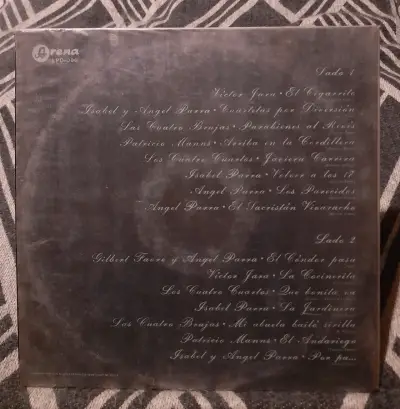 Arena
Lado 1
Victor Jara • El Cigarrito
Isabel y Angel Parra • Cuartetas por Diversión
Las Cuatro Brujas • Parabienes al Revés
Patricio Manns • Arriba en la Cordillera
Los Cuatro Cuartos • Javiera Carrera
Isabel Parra • Volver a los 17
Angel Parra • Los Parecidos
Angel Parra • El Sacristán Vivaracho
Lado 2
Gilbert Favre y Angel Parra • El Cóndor pasa
Victor Jara • La Cocinerita
Los Cuatro Cuartos • Que bonita va
Isabel Parra • La Jardinera
Las Cuatro Brujas • Mi abuela bailó sirilla
Patricio Manns • El Andariego
Isabel y Angel Parra • Por pa...